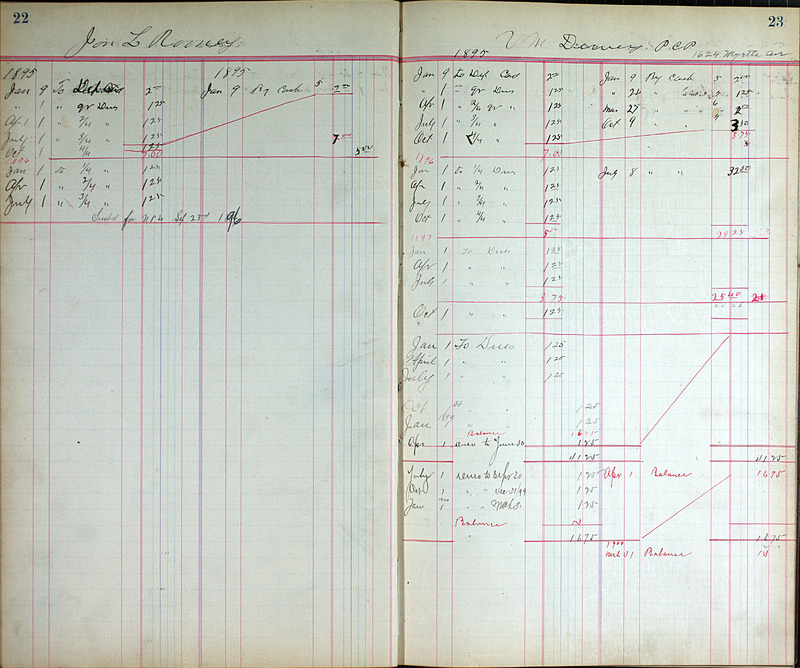 22
Jon L Rooney
1895 1895
Jan 9 To 2 00 Jan 9 By Cash 5 2 00
" 1 " qr Dues 1 25
Apr 1 " 2/4 " 1 25
July 1 " 3/4 " 1 25 7 00
Oct 1 " 4/4 " 1 25
1896 7.00 5 00
Jan 1 To 1/4 " 1 25
Apr 1 " 2/4 " 1 25
July 1 " 3/4 " 1 25
for N.P.D. Sept 23rd 1896
23
V M Dewey P.C.P. 1624 Myrtle Av
1895
Jan 9 To Dep Card 2 00 Jan 9 By Cash 5 2 00
" 1 " qr Dues 1 25 " 24 " 5 1 25
Apr 1 " 2/4 qr " 1 25 Mar 27 " " 6 2 50
July 1 " 3/4 " 1 25 Oct 9 " "
Oct 1 4/4 " 1 25
1896 7.00
Jan 1 To 1/4 Dues 1 25 July 8 " " 32 00
Apr 1 " 2/4 " 1 25
July 1 " 3/4 " 1 25
Oct 1 " 4/4 " 1 25
1897 5 00
Jan 1 To Dues 1 25
Apr 1 " " 1 25
July 1 " " 1 25
3 75
Oct 1 " " 1 25
Jan 1 To Dues 1 25
April 1 " " 1 25
July 1 " " 1 25
Oct 1st " " 1 25
Jan 1 1899 " " 1 25
Balance 16 75
Apr 1 Dues to June 30 1 25
41 25 41 25
July 1 Dues to Sept 30 1 25 Apr 1 Balance 16 75
Oct 1 " " Dec 31/99 1 25
Jan 1 1900 " " Mch 31 1 25
Balance 13
16 75 16 75
1900
Mch 31 Balance 13